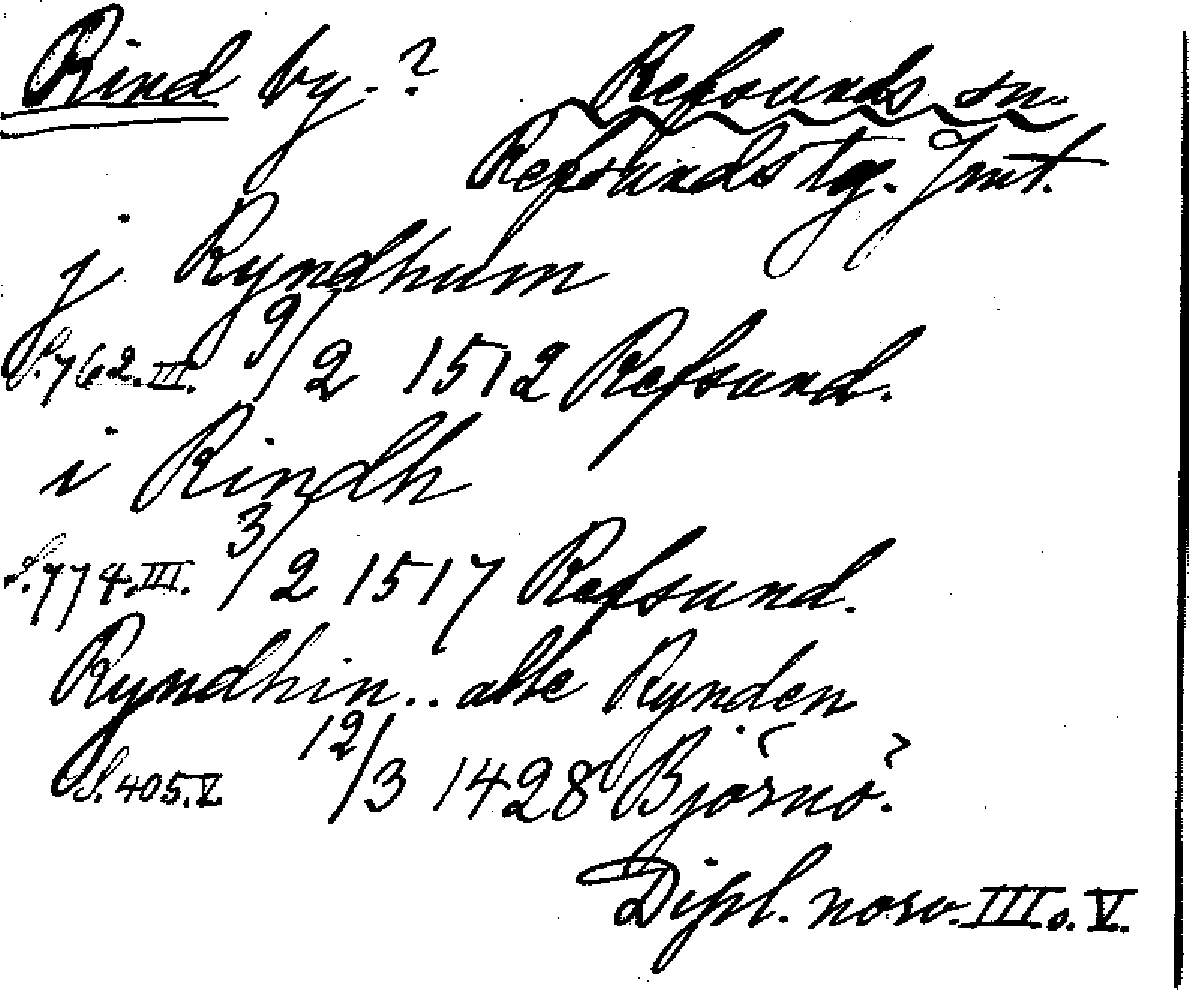 Rind by.?
Refsunds sn.
Refsunds tg. Jmt.
j Ryndhum
S. 762. III. 9/2 1512 Refsund.
i Rindh
S. 774. III. 3/2 1517 Refsund.
Ryndhin.. alle Rynden
S. 405. V. 12/3 1428 Björnö?
Dipl. norv. III o. V.